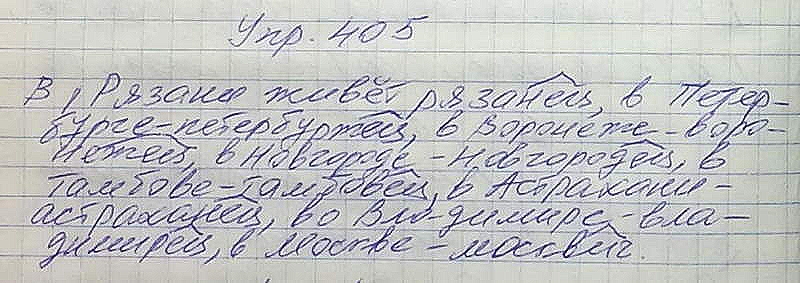 Упр. 405
В, Рязани живёт рязанец, в Петер-
бурге-петербуржец, в Воронеже-воро-
нежец, в Новгороде-новгородец, в
Тамбове-тамбовец, в Астрахани-
астраханец, во Владимире-вла-
димирец, в Москве-москвич.